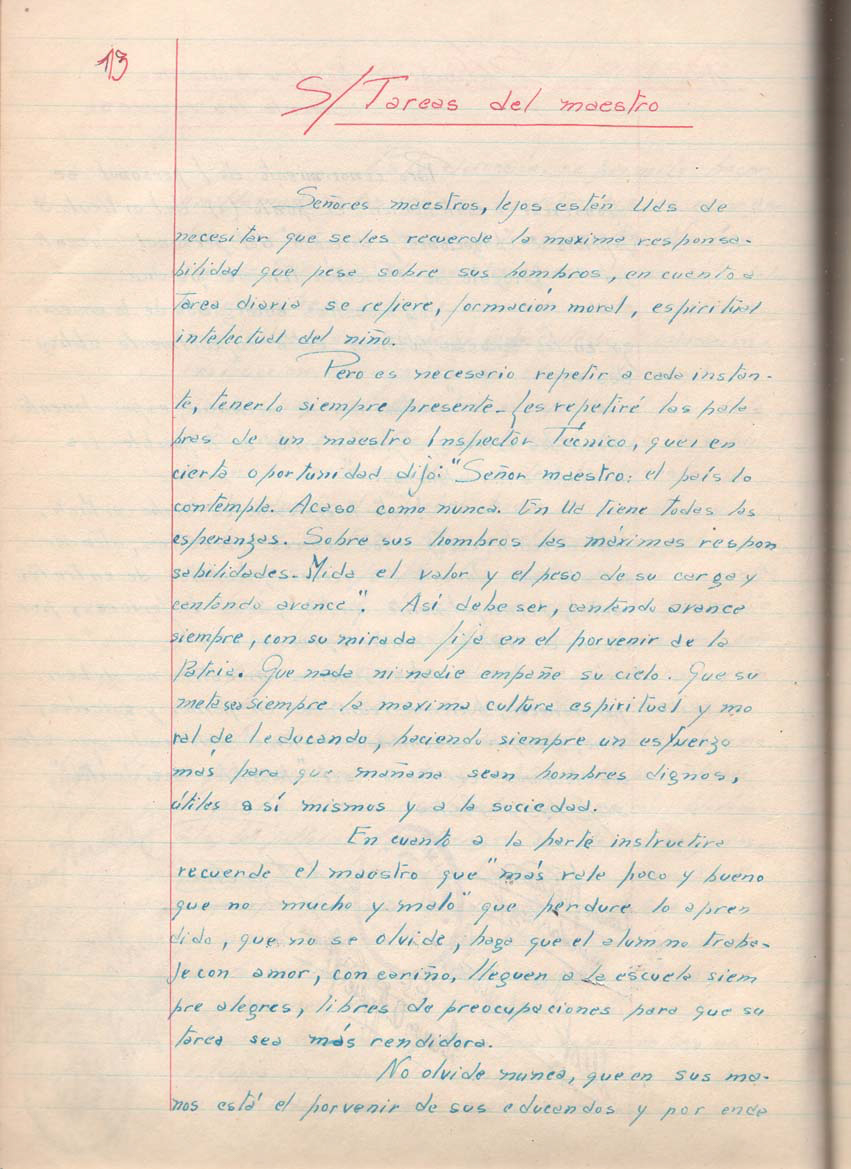 13
S/ Tareas del maestro
Señores maestros, lejos están Uds de
necesitar que se les recuerde la maxima responsa-
bilidad que pesa sobre sus hombros, en cuanto a
tarea diaria se refiere, formación moral, espiritual
intelectual del niño.
Pero es necesario repetir a cada instan-
te, tenerlo siempre presente_ les repetiré las pala
bras de un maestro Inspector Técnico, que en
cierta oportunidad dijo: "Señor maestro: el país lo
contempla. Acaso como nunca. En Ud tiene todas las
esperanzas. Sobre sus hombros las máximas respon
sabilidades. Mida el valor y el peso de su carga y
cantando avance". Así debe ser, cantando avance
siempre, con su mirada fija en el porvenir de la
Patria. Que nada ni nadie empañe su cielo. Que su
meta sea siempre la maxima cultura espiritual y mo
ral del educando, haciendo siempre un esfuerzo
más para que mañana sean hombres dignos,
útiles a sí mismos y a la sociedad.
En cuanto a la parte instructiva
recuerde el maestro que "más vale poco y bueno
que no mucho y malo" que perdure lo apren
dido, que no se olvide, haga que el alumno traba-
je con amor, con cariño, lleguen a la escuela siem
pre alegres, libres de preocupaciones para que su
tarea sea más rendidora.
No olvide nunca, que en sus ma-
nos está el porvenir de sus educandos y por ende